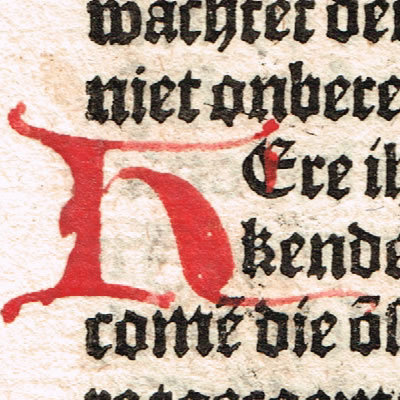 wachter der
niet onbere
HEre ik
kende
comē die ōl